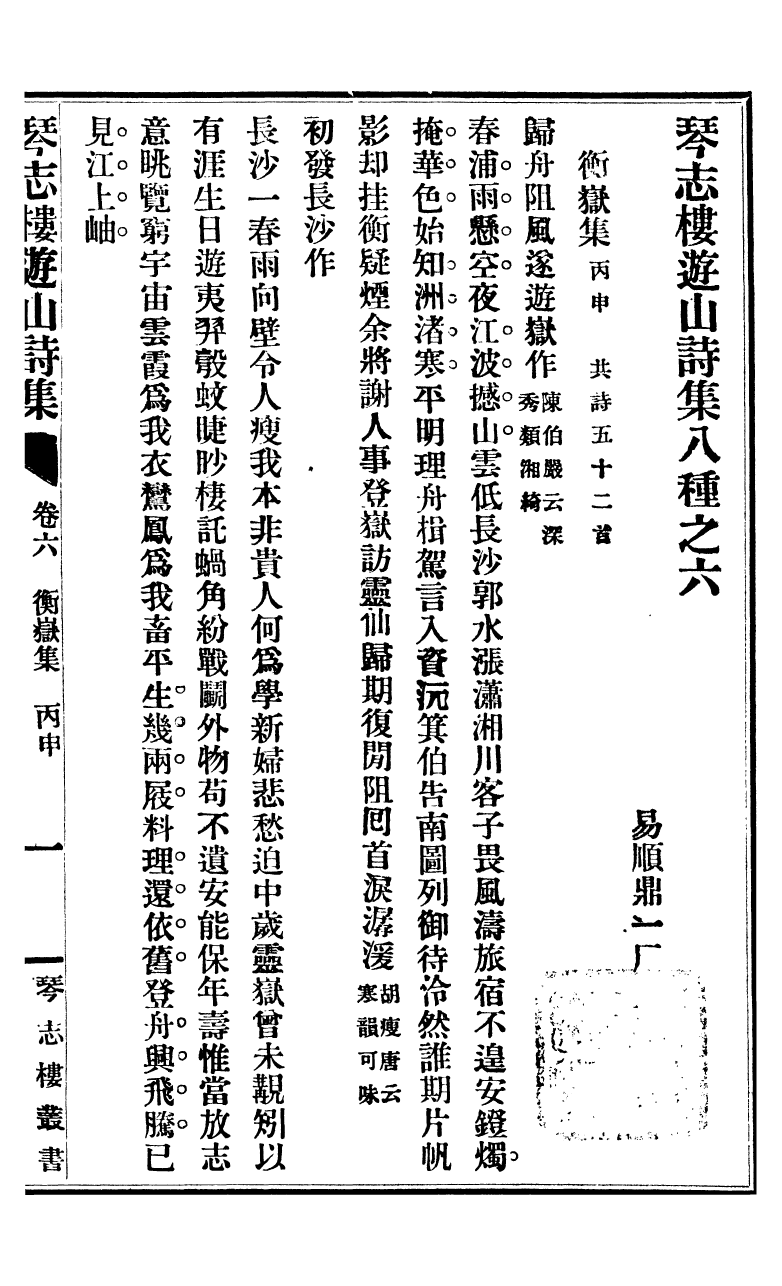 琴志樓遊山詩集八種之六
易順鼎一厂
衡嶽集 丙申 共詩五十二首
歸舟阻風遂遊嶽作 陳伯嚴云深
秀類湘綺
春浦雨懸空夜江波撼山雲低長沙郭水漲瀟湘川客子畏風濤旅宿不遑安鐙燭
掩華色始知洲渚寒平明理舟楫駕言入資沅箕伯告南圖列御待泠然誰期片帆
影却挂衡疑煙余將謝人事登嶽訪靈仙歸期復閒阻囘首淚潺湲 胡瘦唐云
寒韻可味
初發長沙作
長沙一春雨向壁令人瘦我本非貴人何爲學新婦悲愁迫中歲靈嶽曾未覯矧以
有涯生日遊夷羿彀蚊睫眇棲託蝸角紛戰鬭外物苟不遺安能保年壽惟當放志
意眺覽窮宇宙雲霞爲我衣鸞鳳爲我畜平生幾兩屐料理還依舊登舟興飛騰已
見江上岫
琴志樓遊山詩集 卷六 衡嶽集 丙申 一 琴志樓叢書